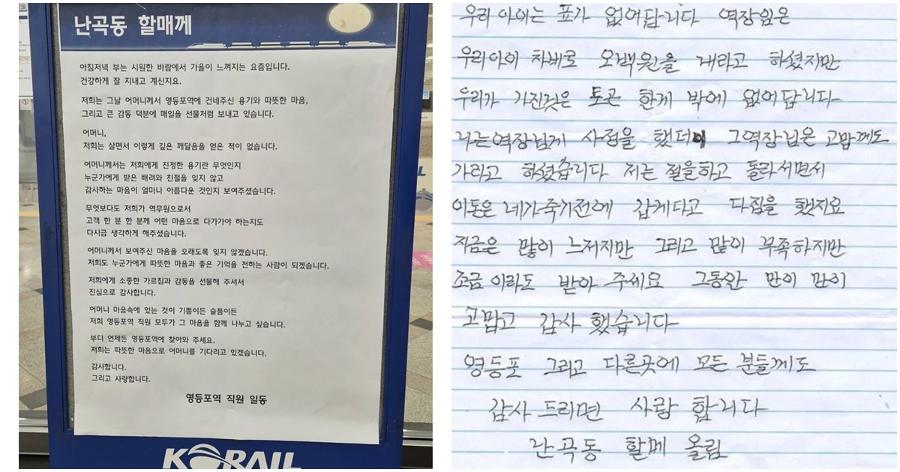 난곡동 할매께
아침저녁 부는 시원한 바람에서 가을이 느껴지는 요즘입니다.
건강하게 잘 지내고 계신지요.
저희는 그날 어머니께서 영등포역에 건네주신 용기와 따뜻한 마음,
그리고 큰 감동 덕분에 매일을 선물처럼 보내고 있습니다.
어머니,
저희는 살면서 이렇게 깊은 깨달음을 얻은 적이 없습니다.
어머니께서는 저희에게 진정한 용기란 무엇인지
누군가에게 받은 배려와 친절을 잊지 않고
감사하는 마음이 얼마나 아름다운 것인지 보여주셨습니다.
무엇보다도 저희가 역무원으로서
고객 한 분 한 분께 어떤 마음으로 다가가야 하는지도
다시금 생각하게 해주셨습니다.
어머니께서 보여주신 마음을 오래도록 잊지 않겠습니다.
저희도 누군가에게 따뜻한 마음과 좋은 기억을 전하는 사람이 되겠습니다.
저희에게 소중한 가르침과 감동을 선물해 주셔서
진심으로 감사합니다.
어머니 마음속에 있는 것이 기쁨이든 슬픔이든
저희 영등포역 직원 모두가 그 마음을 함께 나누고 싶습니다.
부디 언제든 영등포역에 찾아와 주세요.
저희는 따뜻한 마음으로 어머니를 기다리고 있겠습니다.
감사합니다.
그리고 사랑합니다.
영등포역 직원 일동
KORAIL
우리 아이는 표가 없어답니다 역장임은
우리아이 차비로 오백원을 내라고 하셨지만
우리가 가진것은 토큰 한게 밖에 없어답니다
나는 역장님게 사정을 했더니 그역장님은 고맙께도
가라고 하셨습니다 저는 절을하고 돌라서면서
이돈은 네가죽기전에 갑게다고 다짐을 했지요
지금은 많이 느저지만 그리고 많이 부족하지만
조금 이라도 받아 주세요 그동안 만이 많이
고맙고 감사 했습니다
영등포 그리고 다른곳에 모든 분들께도
감사 드리면 사랑 합니다
난곡동 할메 올림